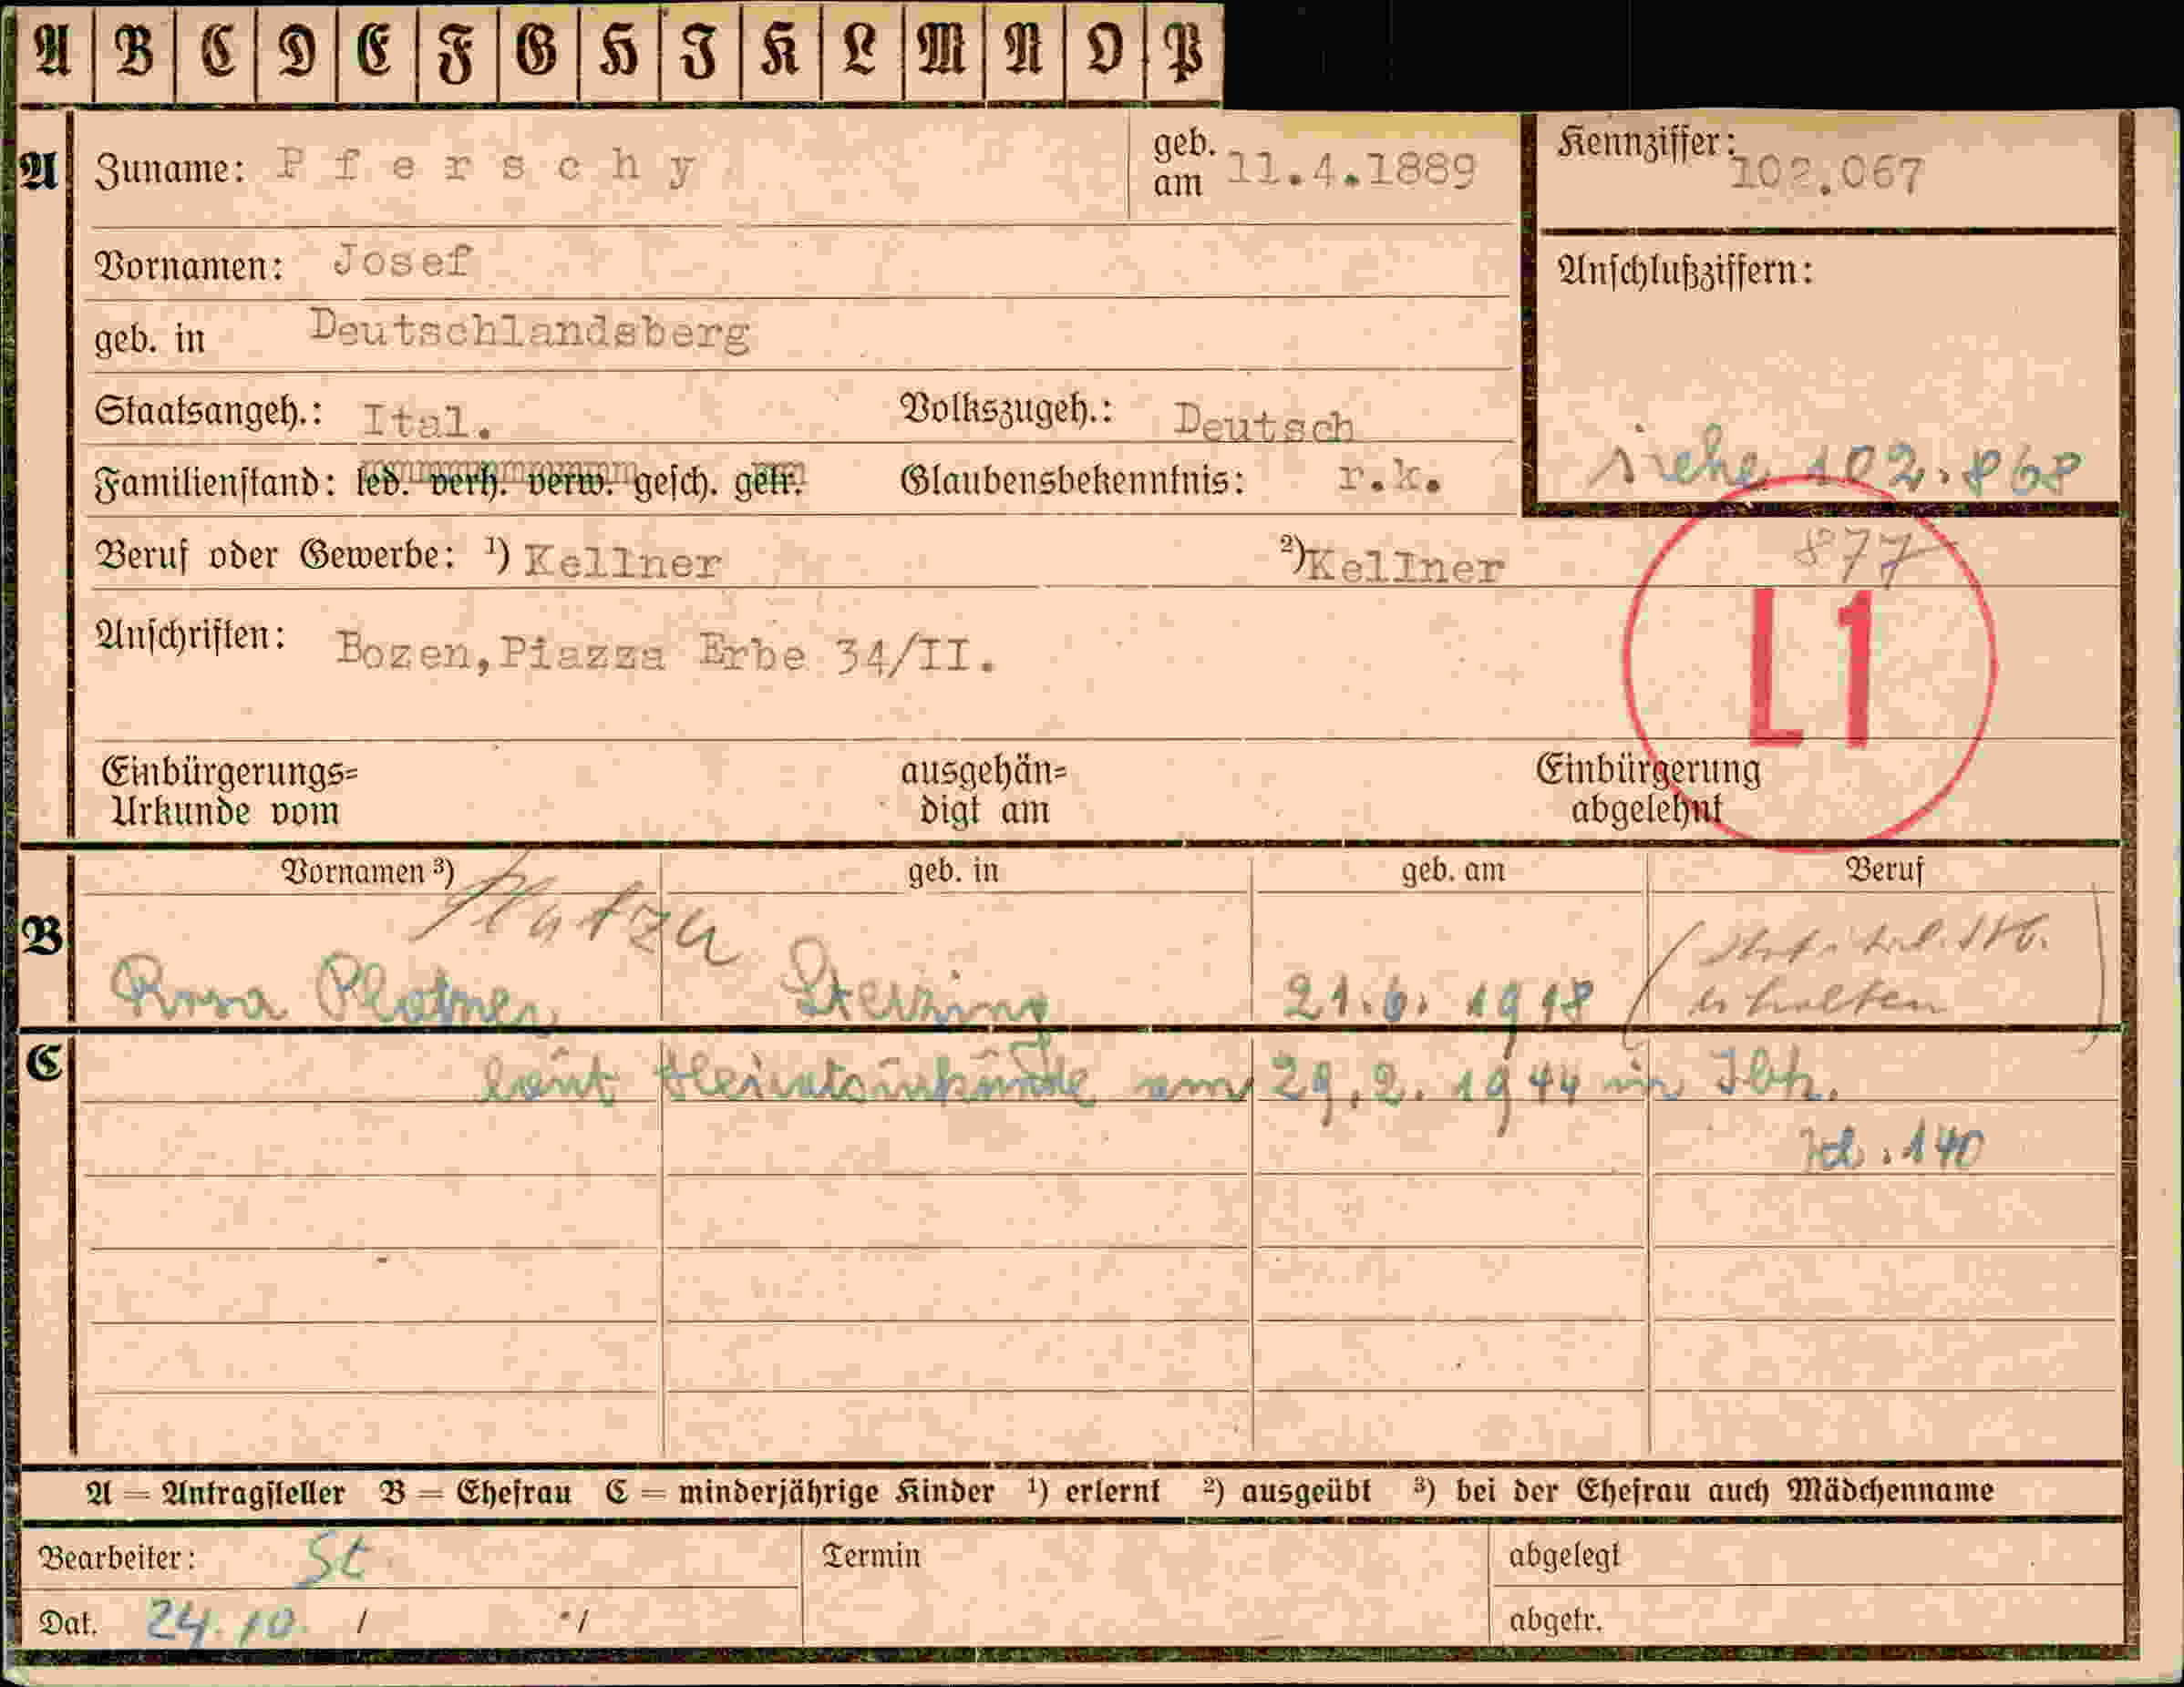 A B C D E F G H I K L M N O P
A Zuname: Pferschy geb. am 11.4.1889 Kennziffer: 102.067
Vornamen: Josef Anschlußziffern:
geb. in Deutschlandsberg
Staatsangeh.: Ital. Volkszugeh.: Deutsch
siehe 102.868
Familienstand: led. verh. verw. gesch. getr. Glaubensbekenntnis: r.k.
877
Beruf oder Gewerbe: ¹) Kellner ²) Kellner
L1
Anschriften: Bozen, Piazza Erbe 34/II.
Einbürgerungs= Urkunde vom ausgehän= digt am Einbürgerung abgelehnt
Vornamen ³) geb. in geb. am Beruf
B Rosa Plotner Sterzing 21.6.1918
erhalten
C laut Heiratsurkunde am 29.2.1944 in Ibk.
140
A = Antragsteller B = Ehefrau C = minderjährige Kinder ¹) erlernt ²) ausgeübt ³) bei der Ehefrau auch Mädchenname
Bearbeiter: St Termin abgelegt
Dat. 24.10. / / abgetr.